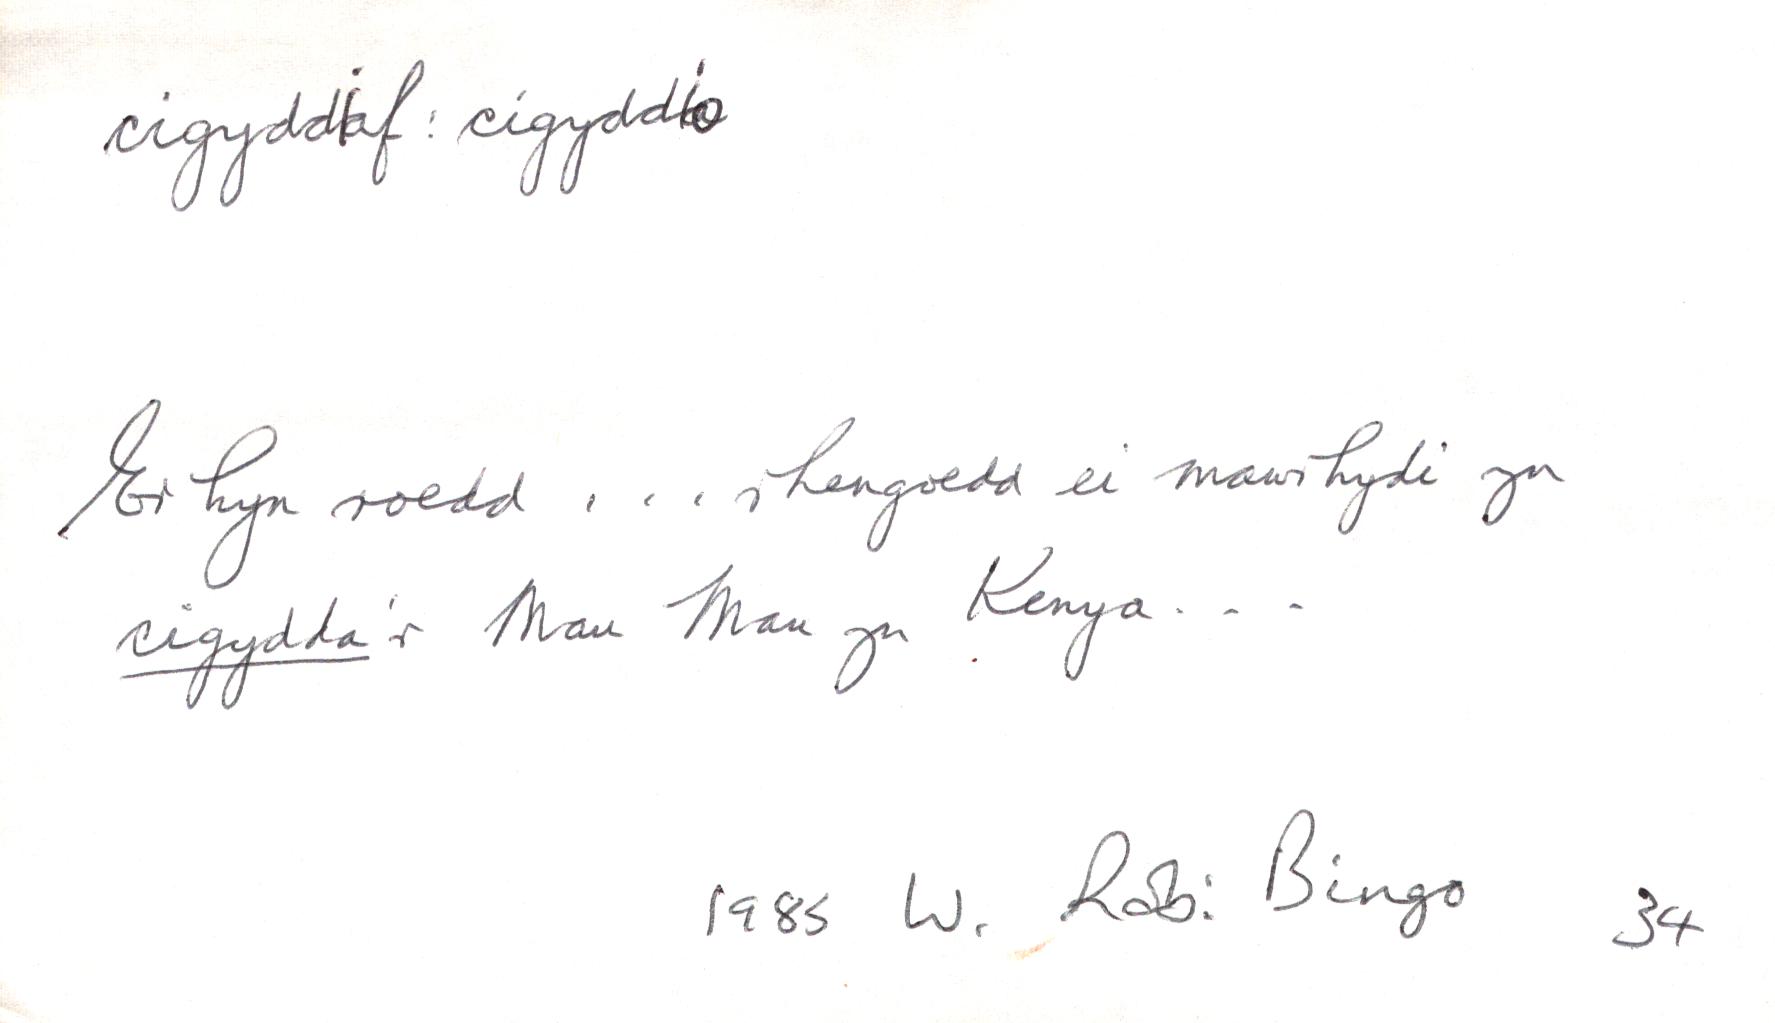 cigyddiaf : cigyddio
Er hyn roedd . . . rhengoedd ei mawrhydi yn
cigydda'r Mau Mau yn Kenya . . .
1985 W. Rob: Bingo 34